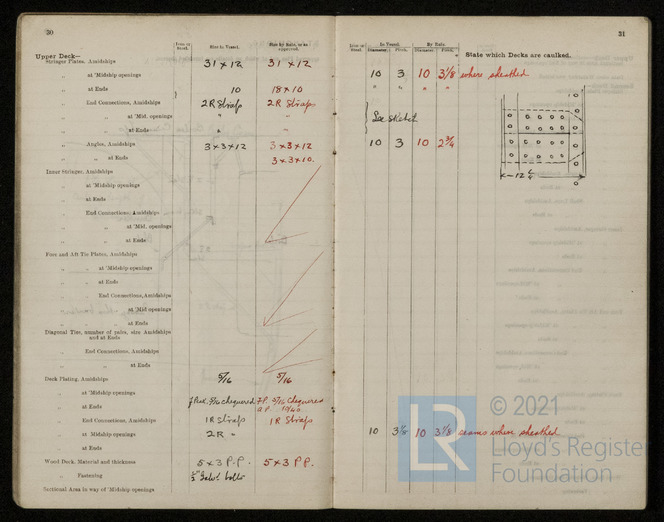 30
Iron or Steel. Size in Vessel. Size by Rule, or as approved.
Upper Deck—
Stringer Plates, Amidships 31 × 12 31 × 12
„ at 'Midship openings
„ at Ends 10 18 × 10
„ End Connections, Amidships 2R Straps 2R Straps
„ „ at 'Mid. openings „ „
„ „ at Ends „ „
„ Angles, Amidships 3 × 3 × 12 3 × 3 × 12
„ „ at Ends 3 × 3 × 10.
Inner Stringer, Amidships
„ at 'Midship openings
„ at Ends
„ End Connections, Amidships
„ „ at 'Mid. openings
„ „ at Ends
Fore and Aft Tie Plates, Amidships
„ „ at 'Midship openings
„ „ at Ends
„ „ End Connections, Amidships
„ „ „ at 'Mid openings
„ „ „ at Ends
Diagonal Ties, number of pairs, size Amidships and at Ends
„ End Connections, Amidships
„ „ at Ends
Deck Plating, Amidships 5/16 5/16
„ at 'Midship openings
„ at Ends 5/16 chequered F.P. 5/16 Chequered
10/40
„ End Connections Amidships 1R Straps 1R Straps
„ at 'Midship openings 2R „
„ at Ends
Wood Deck, Material and thickness 5 × 3 P.P. 5 × 3 P.P.
„ Fastening Galv. bolts
Sectional Area in way of 'Midship openings
31
Iron or Steel. In Vessel. By Rule.
Diameter. Pitch. Diameter. Pitch.
State which Decks are caulked.
10 3 10 3 1/8 where sheathed
„ „ „ „
See sketch
10 3 10 2 3/4
12
10 3 1/8 10 3 1/8 seams where sheathed
LR
© 2021
Lloyd's Register
Foundation